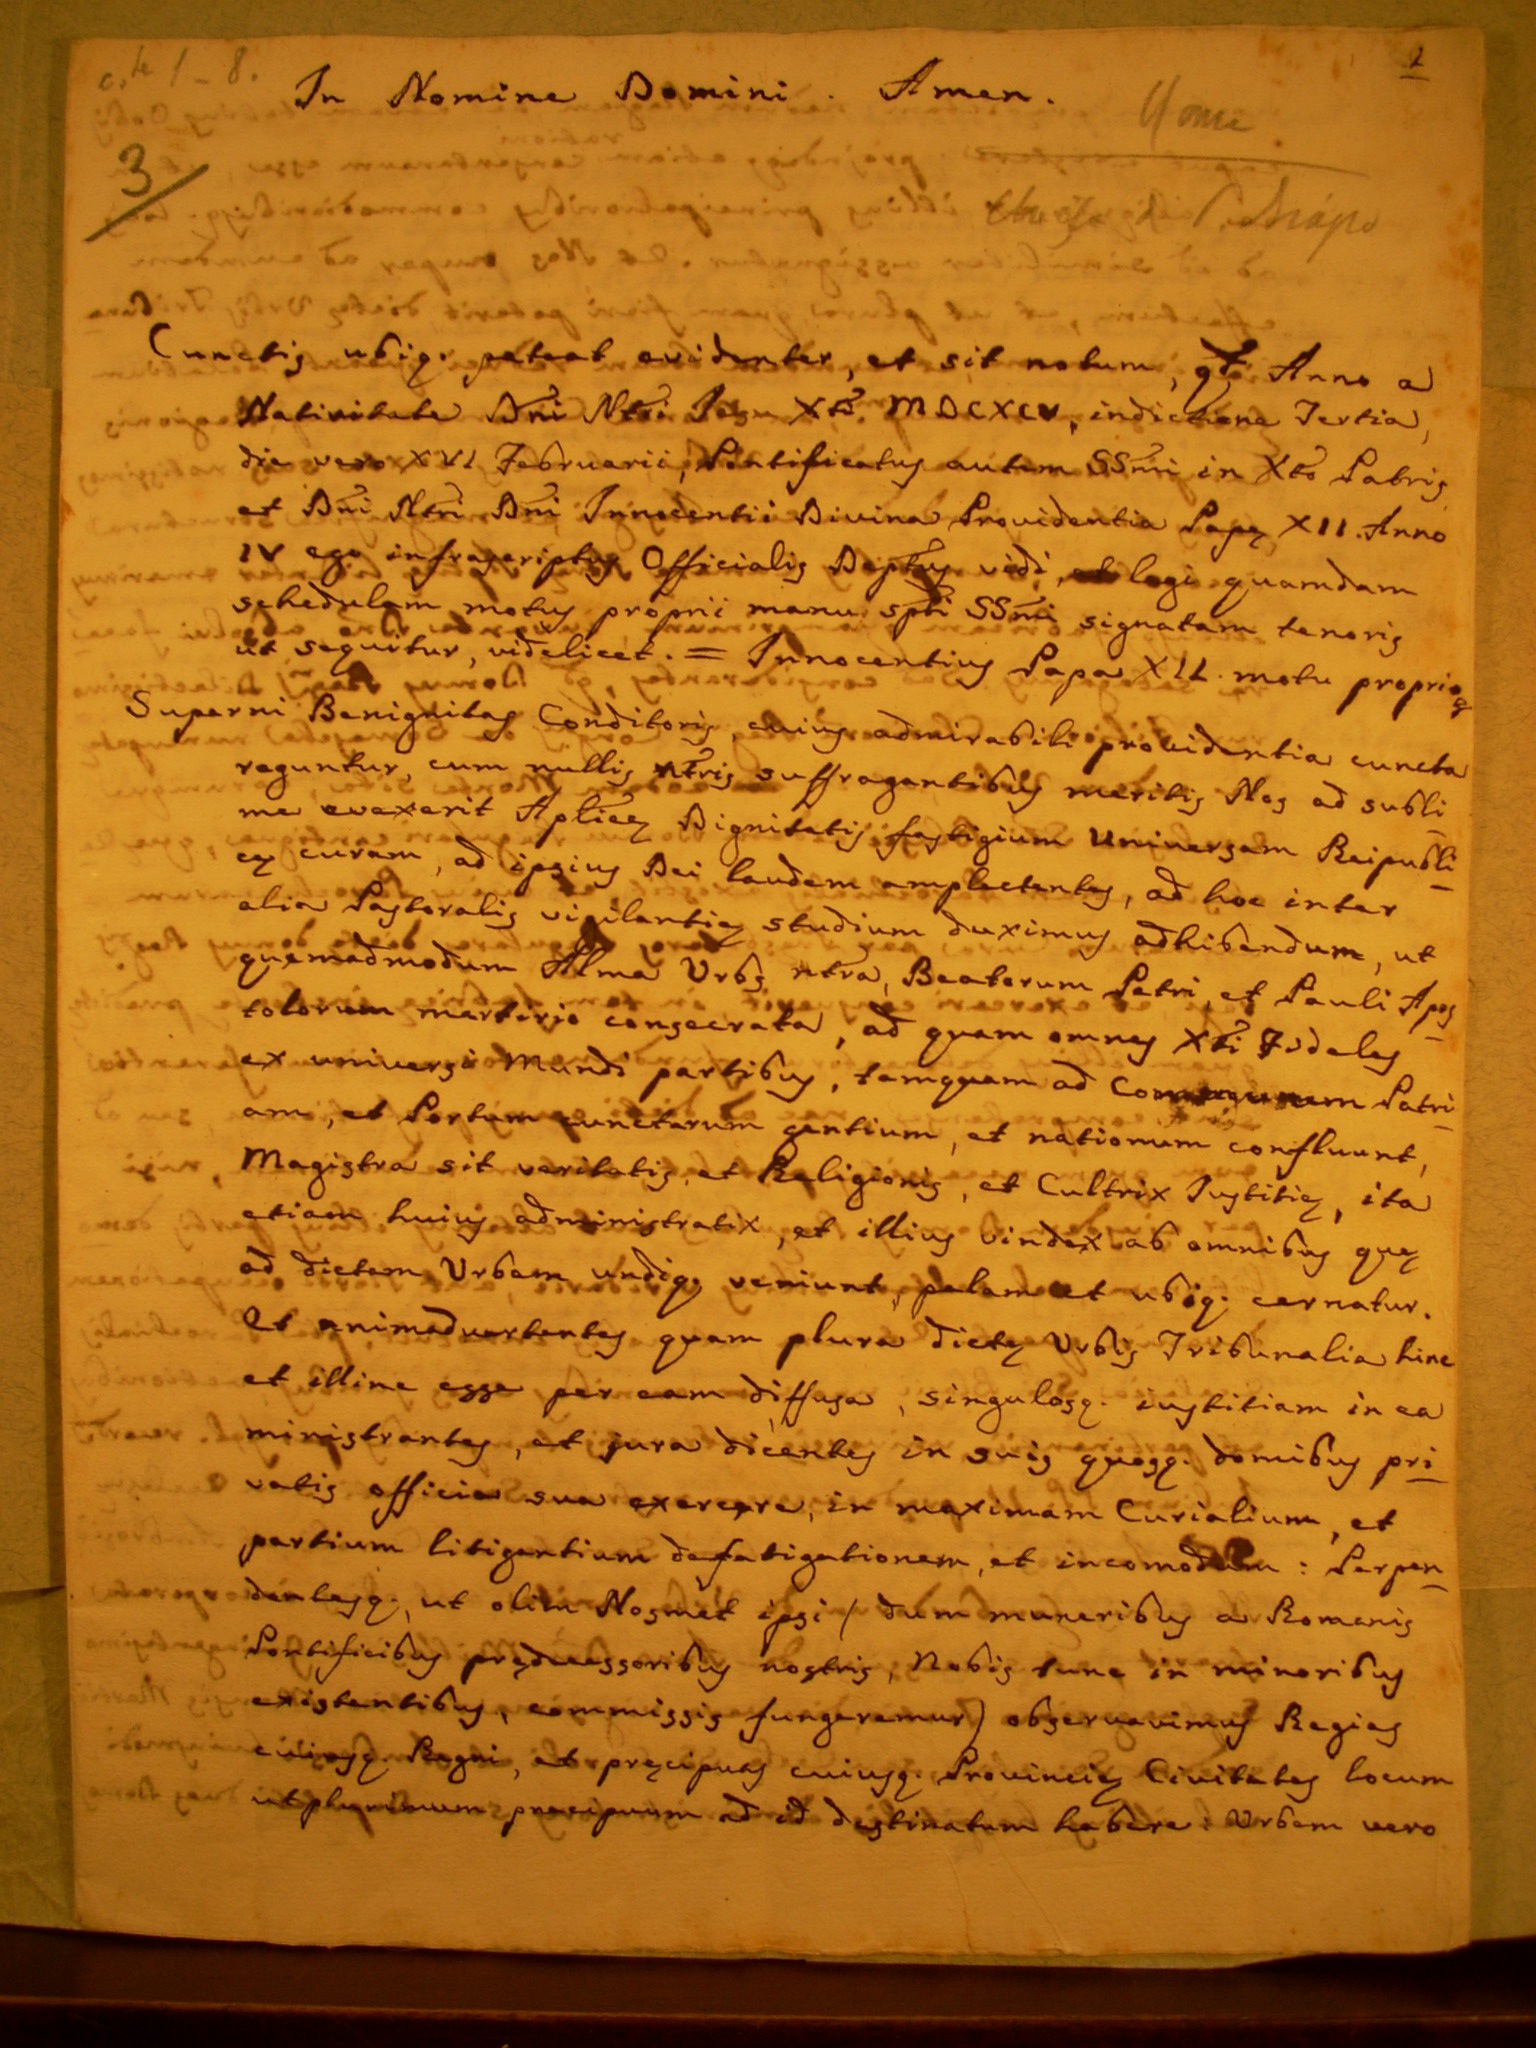 c.te 1 - 8.
1
In Nomine Domini. Amen.
Roma
3
Cunctis ubiq. pateat evidenter, et sit notum, qt Anno a
Nativitate Dni Ntri Jesu Xti MDCXCV, indictione Tertia,
die vero XVI Februarii, Pontificatus autem SSmi in Xto Patris
et Dni Ntri Dni Innocentii Divina Providentia Papę XII. Anno
IV ego infrascriptus Officialis Deptus vidi, et legi quamdam
schedulam motus proprii manu spti SSmi signatam tenoris
ut sequitur, videlicet. = Innocentius Papa XII. motu proprio &
Superni Benignitas Conditoris, cuius admirabili providentia cuncta
reguntur, cum nullis ntris suffragantibus meritis Nos ad subli
me evexerit Aplicę Dignitatis fastigium Universam Reipubli
cę curam, ad ipsius Dei laudem amplectentes, ad hoc inter
alia Pastoralis vigilantię studium duximus adhibendum, ut
quemadmodum Alma Urbs ntra, Beatorum Petri, et Pauli Apos
tolorum martirio consecrata, ad quam omnes Xti Fideles
ex universi Mundi partibus, tamquam ad Communem Patri
am, et Portum cunctarum gentium, et nationum confluunt,
Magistra sit veritatis, et Religionis, et Cultrix Justitię, ita
etiam huius administratix, et illius vindex ab omnibus quę
ad dictam Urbem undiq. veniunt, palam et ubiq. cernatur.
Et animadvertentes quam plura dictę Urbis Tribunalia hinc
et illinc esse per eam diffusa, singulosq. iustitiam in ea
ministrantes, et jura dicentes in suis quosq. domibus pri
vatis officia sua exercere, in maximam Curialium, et
partium litigantium defatigationem, et incomodum: Perpen
dentesq., ut olim Nosmet ipsi / dum muneribus a Romanis
Pontificibus prędecessoribus nostris, Nobis tunc in minoribus
existentibus, commissis fungeremur) observavimus Regias
cuiusq. Regni, et pręcipuas cuiusq. Provincię Civitates locum
ut plurimum precipuum ad id destinatum habere: Urbem vero